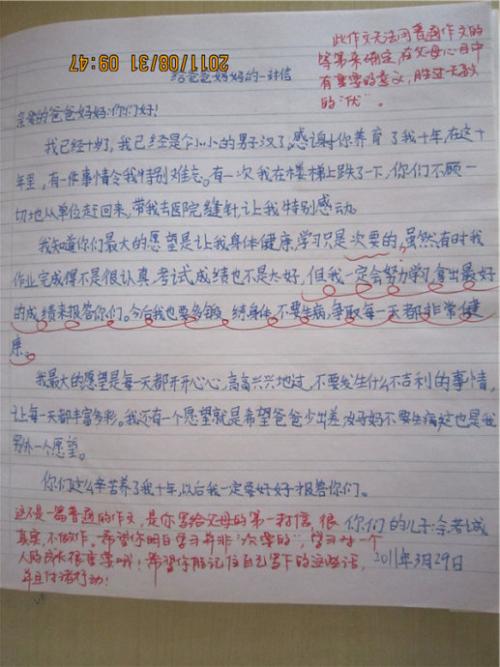 2011/08/31 09:47
此作文无法同普通作文的
等第来确定,在父母心目中
有重要的意义,胜过无数
的"优"。
给爸爸妈妈的一封信
亲爱的爸爸妈妈:你们好!
我已经十岁了,我已经是个小小的男子汉了,感谢你养育了我十年,在这十
年里,有一件事情令我特别难忘。有一次我在楼梯上跌了一下,你们不顾一
切地从单位赶回来,带我去医院缝针,让我特别感动。
我知道你们最大的愿望是让我身体健康,学习只是次要的,虽然有时我
作业完成得不是很认真,考试成绩也不是太好,但我一定会努力学习,拿出最好
的成绩来报答你们。今后我也要多锻炼身体,不要生病,争取每一天都非常健
康。
我最大的愿望是每一天都开开心心,高高兴兴地过,不要发生什么不吉利的事情,
让每一天都丰富多彩。我还有一个愿望就是希望爸爸少出差,妈妈不要生病,这也是我
另外一个愿望。
你们这么辛苦养了我十年,以后我一定要好好报答你们。
这不是一篇普通的作文,是你写给父母的第一封信,很
你们的儿子:余若城
真实,不做作。希望你明白学习并非"次要的",学习对一个
人的成长很重要哦!希望你能记住自己写下的这些话,
2011年3月29日
并且付诸行动!